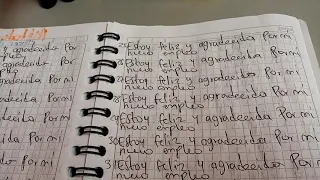 y agradecida Por
empleo
agradecida Por
pleo
adecida Por mi
decida Por mi
decida Por mi
ida Por mi
cido Por mi
Estoy feliz y agradecida Por mi
nuevo empleo
26Estoy feliz y agradecida Por mi
nuevo empleo
27Estoy feliz y agradecida Por mi
nuevo empleo
28Estoy feliz y agradecido Por mi
nuevo empleo
29Estoy feliz y agradecida Por mi
nuevo empleo
30Estoy feliz y agradecida Por mi
nuevo empleo
31Estoy feliz y agradecido Por mi
nuevo empleo